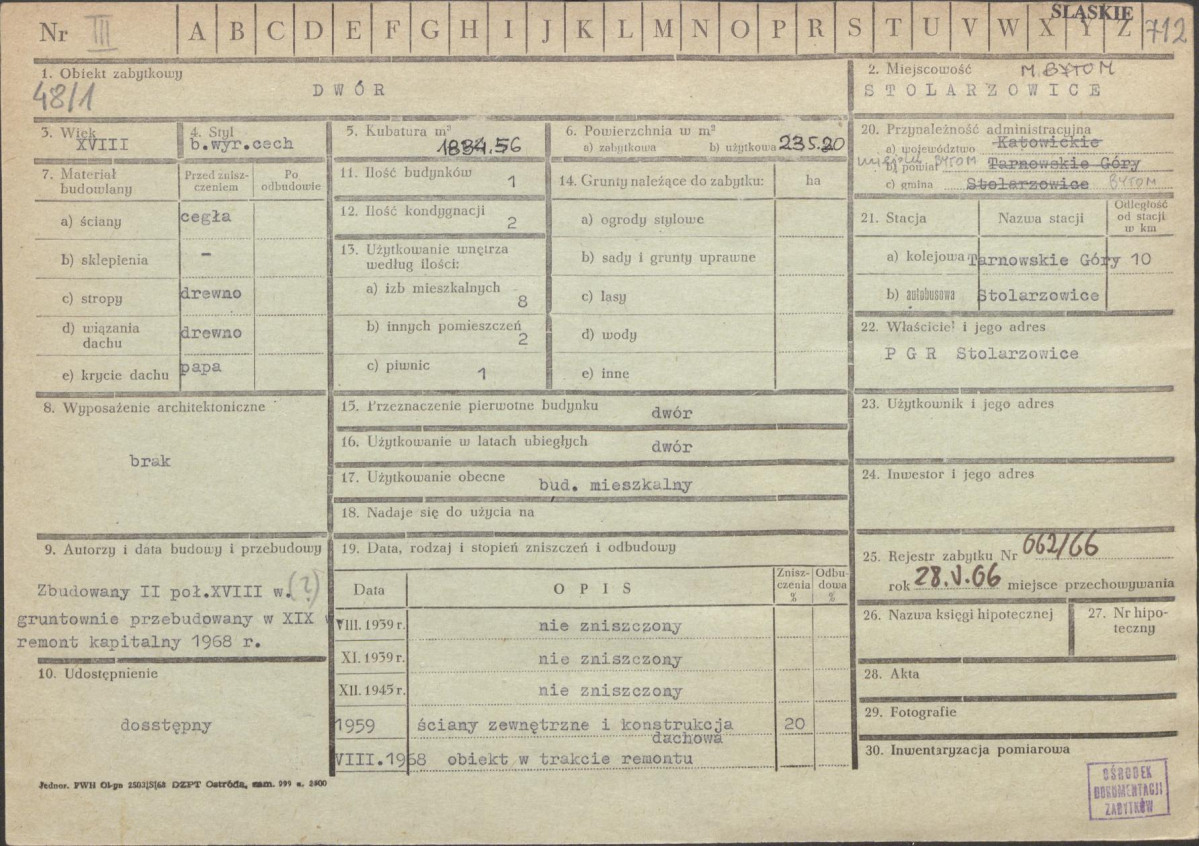 Nr III A B C D E F G H I J K L M N O P R S T U V W X Y Z ŚLĄSKIE 712
1. Obiekt zabytkowy
48/1
DWÓR
2. Miejscowość M. BYTOM
STOLARZOWICE
3. Wiek
XVIII
4. Styl
b.wyr.cech
5. Kubatura m³
1834.56
6. Powierzchnia w m²
a) zabytkowa b) użytkowa 235.20
20. Przynależność administracyjna
a) województwo Katowickie
b) powiat BYTOM Tarnowskie Góry
c) gmina Stolarzowice BYTOM
7. Materiał budowlany
Przed zniszczeniem
Po odbudowie
a) ściany cegła
b) sklepienia -
c) stropy drewno
d) wiązania dachu drewno
e) krycie dachu papa
11. Ilość budynków 1
12. Ilość kondygnacji 2
13. Użytkowanie wnętrza
według ilości:
a) izb mieszkalnych 8
b) innych pomieszczeń 2
c) piwnic 1
14. Grunty należące do zabytku: ha
a) ogrody stylowe
b) sady i grunty uprawne
c) lasy
d) wody
e) inne
21. Stacja Nazwa stacji Odległość od stacji w km
a) kolejowa Tarnowskie Góry 10
b) autobusowa Stolarzowice
22. Właściciel i jego adres
PGR Stolarzowice
8. Wyposażenie architektoniczne
brak
15. Przeznaczenie pierwotne budynku dwór
16. Użytkowanie w latach ubiegłych dwór
17. Użytkowanie obecne bud. mieszkalny
18. Nadaje się do użycia na
23. Użytkownik i jego adres
24. Inwestor i jego adres
9. Autorzy i data budowy i przebudowy
Zbudowany II poł.XVIII w. (?)
gruntownie przebudowany w XIX w
remont kapitalny 1968 r.
10. Udostępnienie
dosstępny
19. Data, rodzaj i stopień zniszczeń i odbudowy
Data OPIS Zniszczenia % Odbudowa %
VIII. 1939 r. nie zniszczony
XI. 1939 r. nie zniszczony
XII. 1945 r. nie zniszczony
1959 ściany zewnętrzne i konstrukcja 20
dachowa
VIII.1968 obiekt w trakcie remontu
25. Rejestr zabytku Nr 662/66
rok 28.V.66 miejsce przechowywania
26. Nazwa księgi hipotecznej
27. Nr hipoteczny
28. Akta
29. Fotografie
30. Inwentaryzacja pomiarowa
Jednor. PWH Ol-yn 2503|S|68 DZPT Ostróda, zam. 999 n. 2000
OŚRODEK
DOKUMENTACJI
ZABYTKÓW